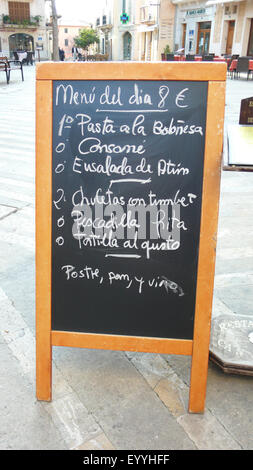 Menú del dia 8 €
1º Pasta a la Boloñesa
o Consomé
o Ensalada de Atún
2º Chuletas con timbet
o Pescadilla frita
o Tortilla al gusto
Postre, pan, y vino
alamy
EYYHFF